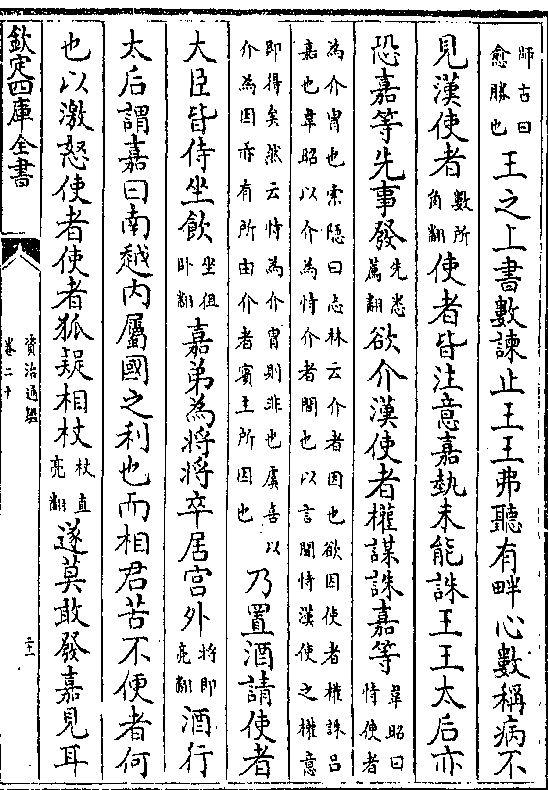 師古曰愈勝也王之上書數諫止王王弗聽有畔心數稱病不
見漢使者數所角翻使者皆注意嘉埶未能誅王王太后亦
恐嘉等先事發先悉薦翻欲介漢使者權謀誅嘉等韋昭曰恃使者
為介胄也索隱曰志林云介者因也欲因使者權誅呂
嘉也韋昭以介為恃介者間也以言間恃漢使之權意
即得矣然云恃為介胄則非也虞喜以
介為因亦有所由介者賓主所因也
乃置酒請使者
大臣皆侍坐飲坐徂卧翻嘉弟為將將卒居宮外將即亮翻酒行
太后謂嘉曰南越内屬國之利也而相君苦不便者何
也以激怒使者使者狐疑相杖杖直亮翻遂莫敢發嘉見耳
欽定四庫全書
資治通鑑
卷二十